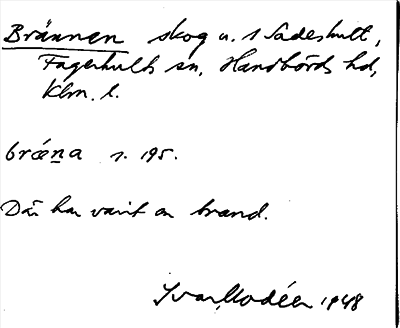 Brännen skog u. 1 Sadeshult,
Fagerhults sn, Handbörds hd,
Klm. l.
bræ´n̲a s. 195.
Där har varit en brand.
Ivar Modéer 1948